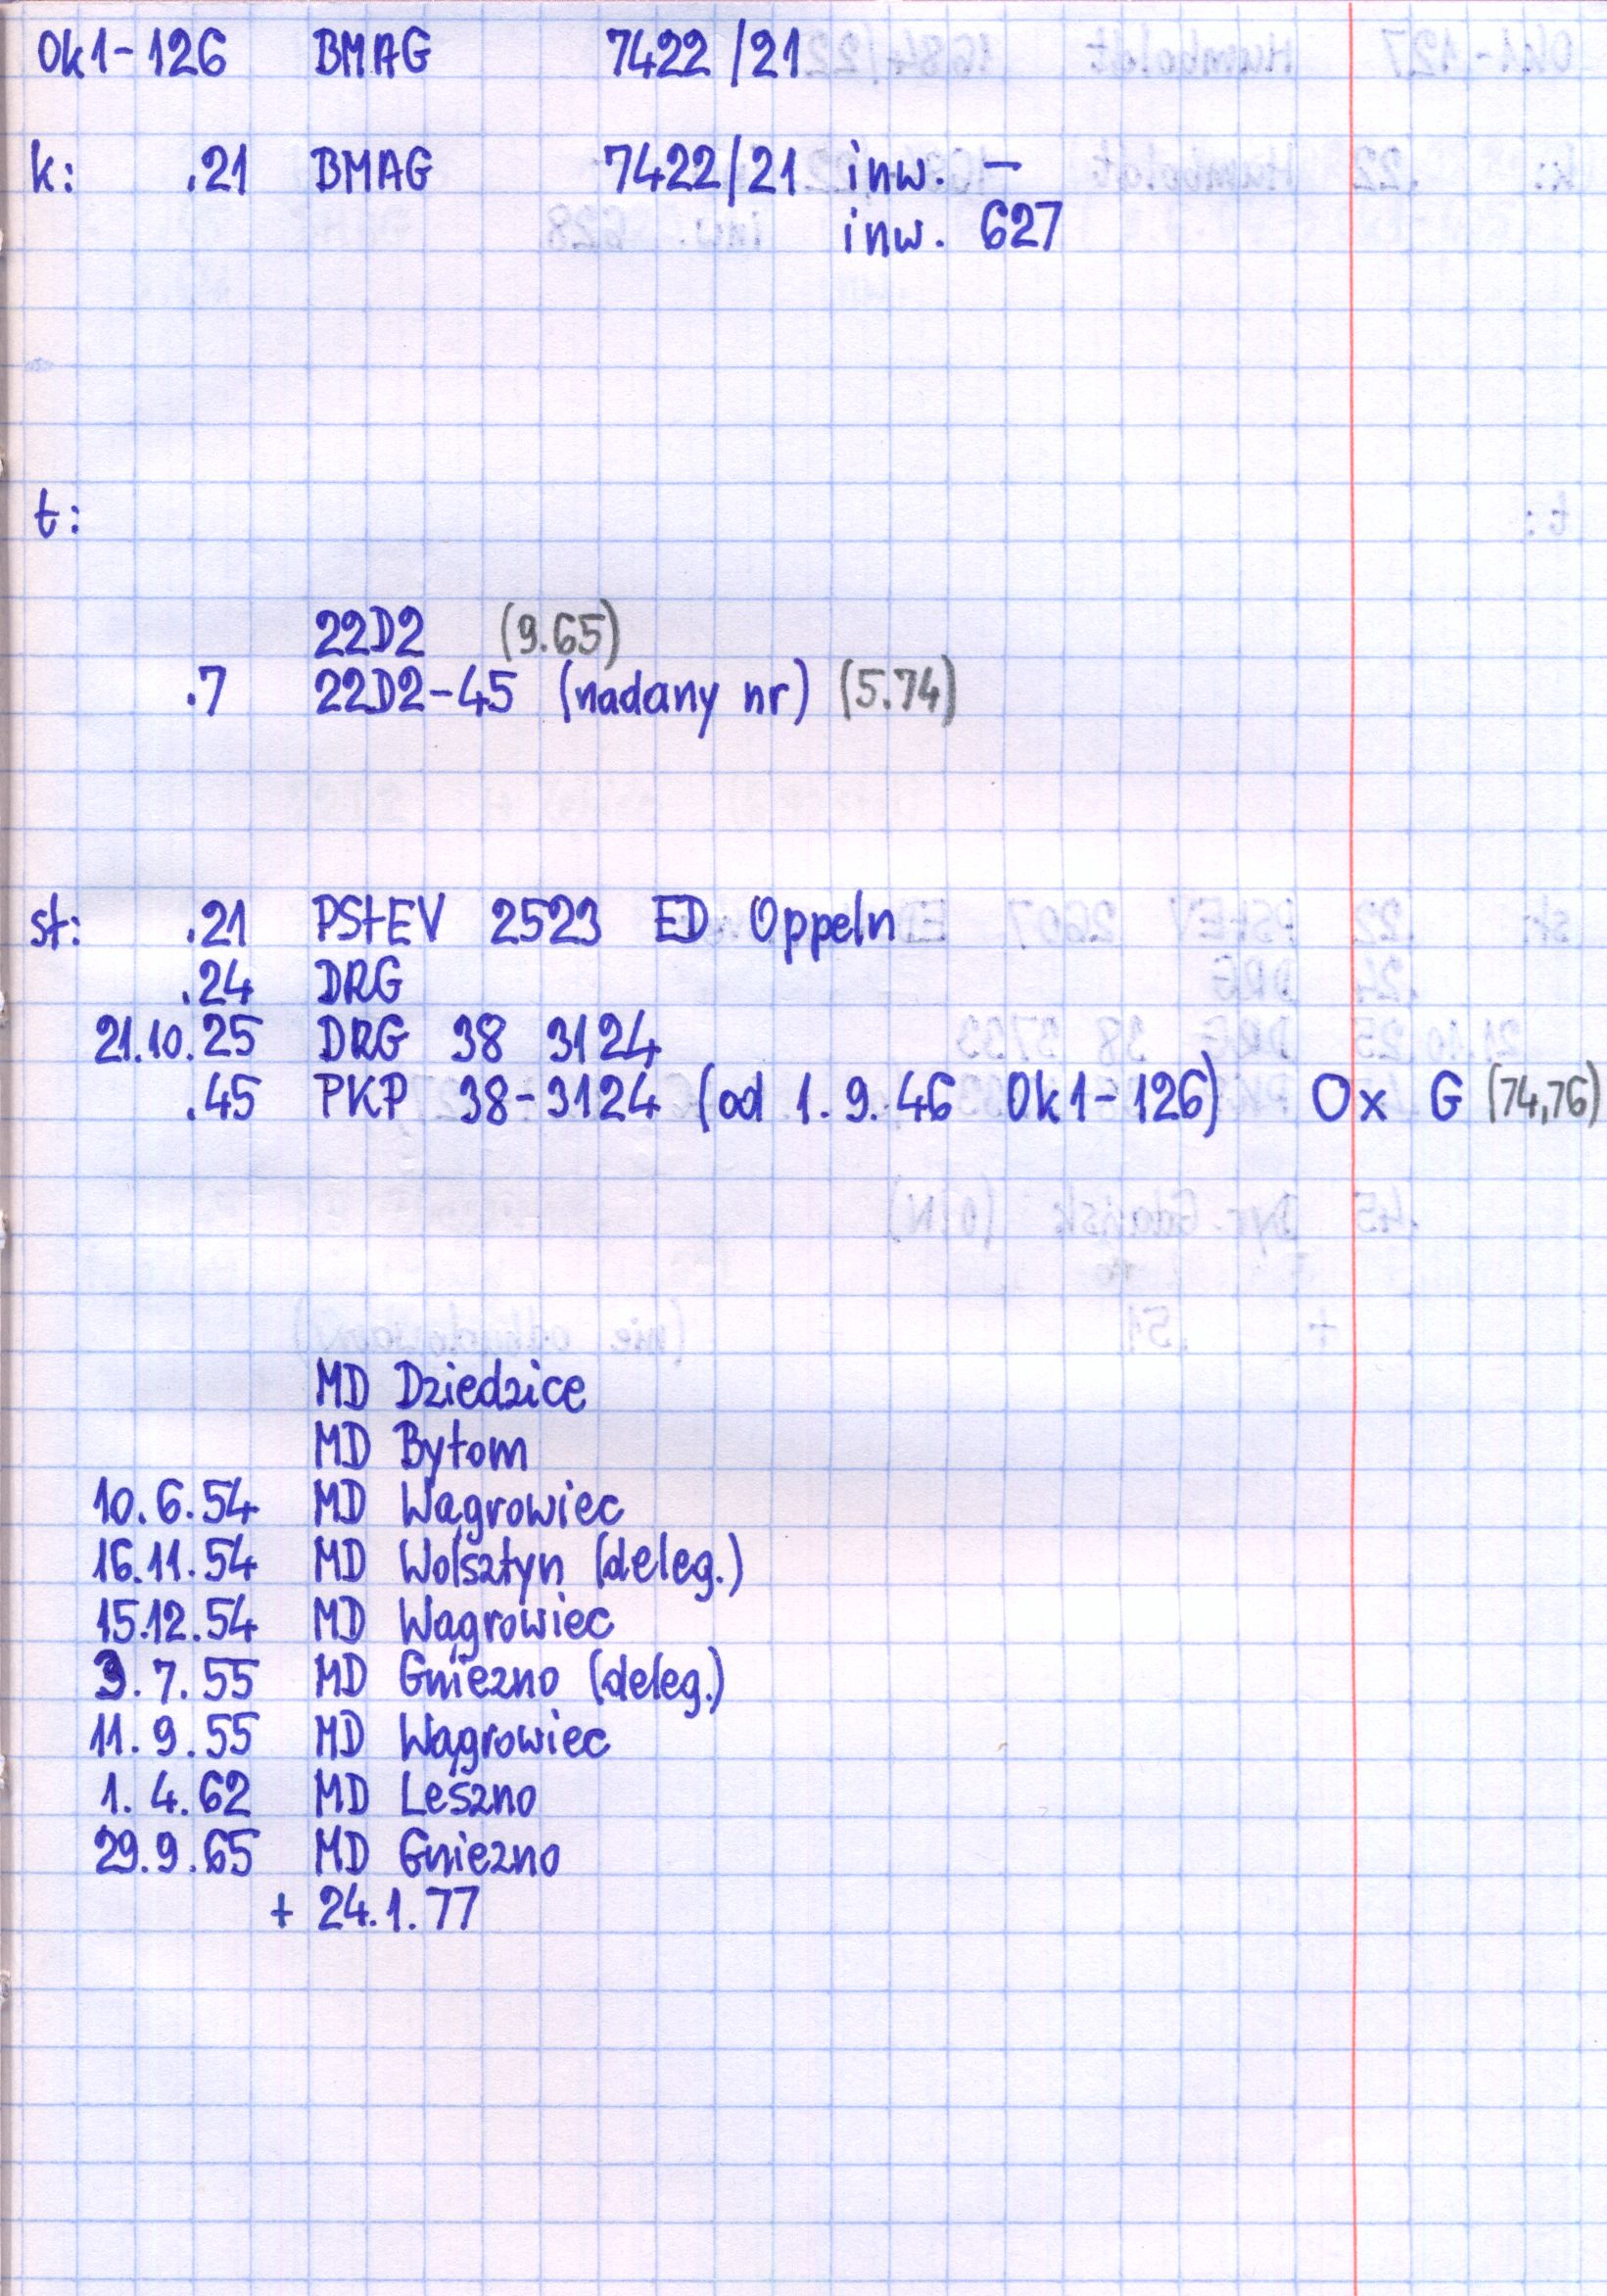 Ok1-126 BMAG 7422/21
k: .21 BMAG 7422/21 inw. –
inw. 627
t:
22D2 (9.65)
.7 22D2-45 (nadany nr) (5.74)
st: .21 PStEV 2523 ED Oppeln
.24 DRG
21.10.25 DRG 38 3124
.45 PKP 38-3124 (od 1.9.46 Ok1-126) Ox G (74,76)
MD Dziedzice
MD Bytom
10.6.54 MD Wągrowiec
16.11.54 MD Wolsztyn (deleg.)
15.12.54 MD Wągrowiec
3.7.55 MD Gniezno (deleg.)
11.9.55 MD Wągrowiec
1.4.62 MD Leszno
29.9.65 MD Gniezno
+ 24.1.77